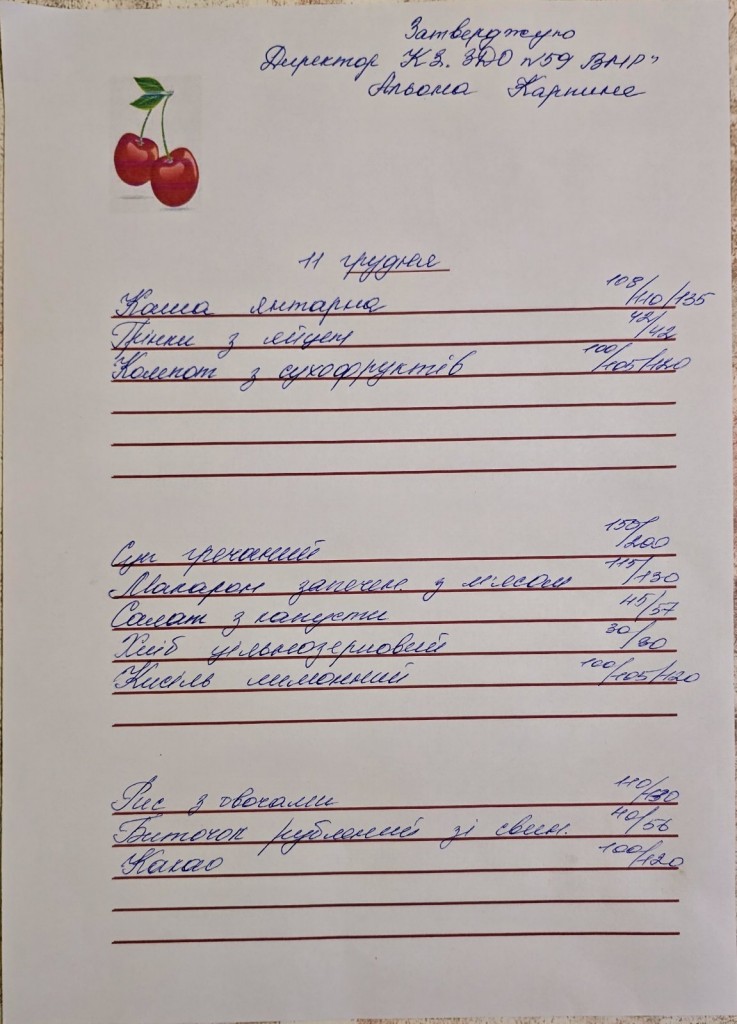 Затверджую
Директор КЗ. ЗДО №59 ВМР"
Альона Карпине
11 грудня
Каша янтарна 108/110/135
Грінки з яйцем 42/42
Компот з сухофруктів 100/105/120
Суп гречаний 155/200
Макарон запечен. з м'ясом 115/130
Салат з капусти 45/57
Хліб цільнозерновий 30/30
Кисіль лимонний 100/105/120
Рис з овочами 110/130
Биточок рублений зі свин. 40/56
Какао 100/120